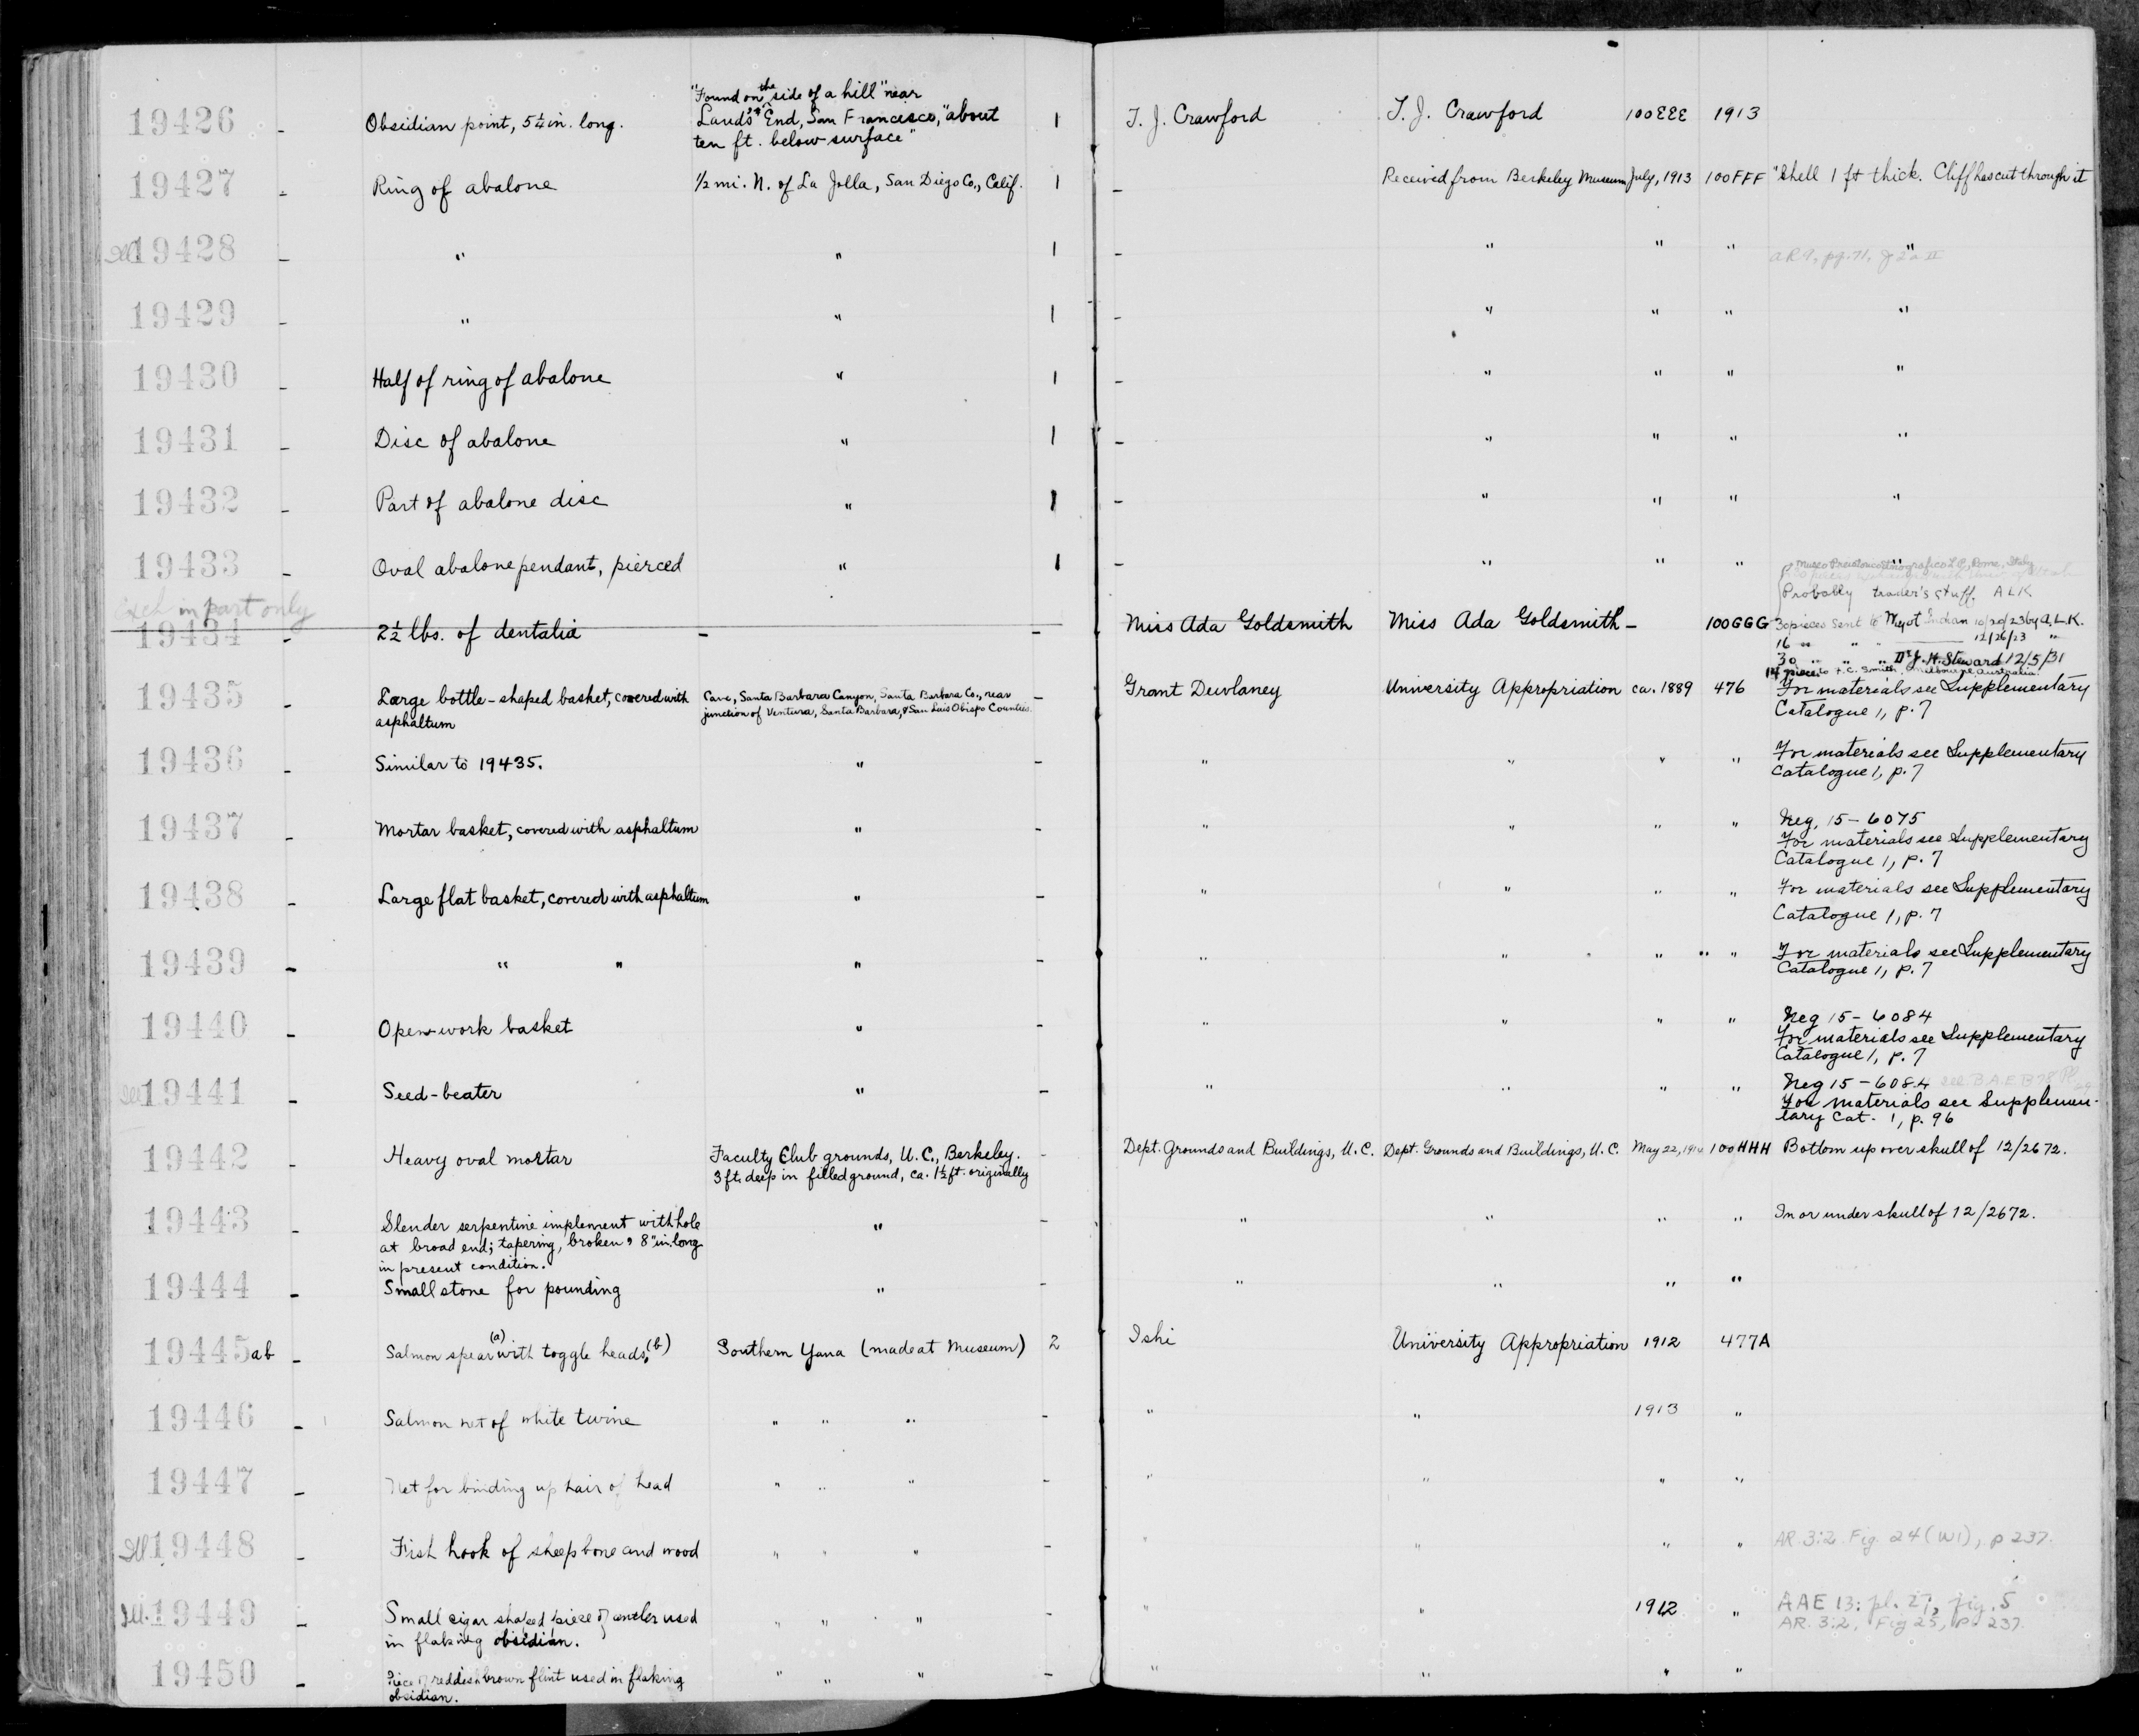 19426 - Obsidian point, 5¼ in. long. "Found on the side of a hill" near
Land's End, San Francisco, "about
ten ft. below surface" 1 T. J. Crawford T. J. Crawford 100EEE 1913
19427 - Ring of abalone ½ mi. N. of La Jolla, San Diego Co., Calif. 1 - Received from Berkeley Museum July, 1913 100FFF "Shell 1 ft thick. Cliff has cut through it
Ill 19428 - " " 1 - " " " "
19429 - " " 1 - " " " "
19430 - Half of ring of abalone " 1 - " " " "
19431 - Disc of abalone " 1 - " " " "
19432 - Part of abalone disc " 1 - " " " "
19433 - Oval abalone pendant, pierced " 1 - " " " "
Probably trader's stuff. ALK
Exch in part only
19434 - 2½ lbs. of dentalia - - Miss Ada Goldsmith Miss Ada Goldsmith - 100GGG 30 pieces sent to Wiyot Indian 10/20/23 by A.L.K.
16 " " 12/26/23 "
30 " " " Dr J. H. Steward 12/5/31
14 pieces to T.C. Smith, Melbourne, Australia.
19435 - Large bottle-shaped basket, covered with
asphaltum Cave, Santa Barbara Canyon, Santa Barbara Co., near
junction of Ventura, Santa Barbara, & San Luis Obispo Counties. - Grant Dewlaney University Appropriation ca. 1889 476 For materials see Supplementary
Catalogue 1, p. 7
19436 - Similar to 19435. " - " " " " For materials see Supplementary
Catalogue 1, p. 7
19437 - Mortar basket, covered with asphaltum " - " " " " Neg. 15-6075
For materials see Supplementary
Catalogue 1, p. 7
19438 - Large flat basket, covered with asphaltum " - " " " " For materials see Supplementary
Catalogue 1, p. 7
19439 - " " " - " " " " For materials see Supplementary
Catalogue 1, p. 7
19440 - Open-work basket " - " " " " Neg 15-6084
For materials see Supplementary
Catalogue 1, p. 7
19441 - Seed-beater " - " " " " Neg 15-6084 see B.A.E. B78
For materials see Supplemen-
tary Cat. 1, p. 96
19442 - Heavy oval mortar Faculty Club grounds, U.C., Berkeley.
3 ft. deep in filled ground, ca. 1½ ft. originally - Dept. Grounds and Buildings, U.C. Dept. Grounds and Buildings, U.C. May 22, 100HHH Bottom up over skull of 12/2672.
19443 - Slender serpentine implement with hole
at broad end; tapering, broken, 8" in. long
in present condition. " - " " " " In or under skull of 12/2672.
19444 - Small stone for pounding " - " " " "
19445ab - Salmon spear (a) with toggle heads, (b) Southern Yana (made at Museum) 2 Ishi University Appropriation 1912 477A
19446 - Salmon net of white twine " " " - " " 1913 "
19447 - Net for binding up hair of head " " " - " " " "
Ill 19448 - Fish hook of sheep bone and wood " " " - " " " " AR. 3:2. Fig. 24 (W1), p 237.
Ill. 19449 - Small cigar shaped piece of antler used
in flaking obsidian. " " " - " " 1912 " AAE 13: pl. 27, fig. 5
AR. 3:2, Fig 25, p. 237.
19450 - Piece of reddish brown flint used in flaking
obsidian. " " " - " " " "